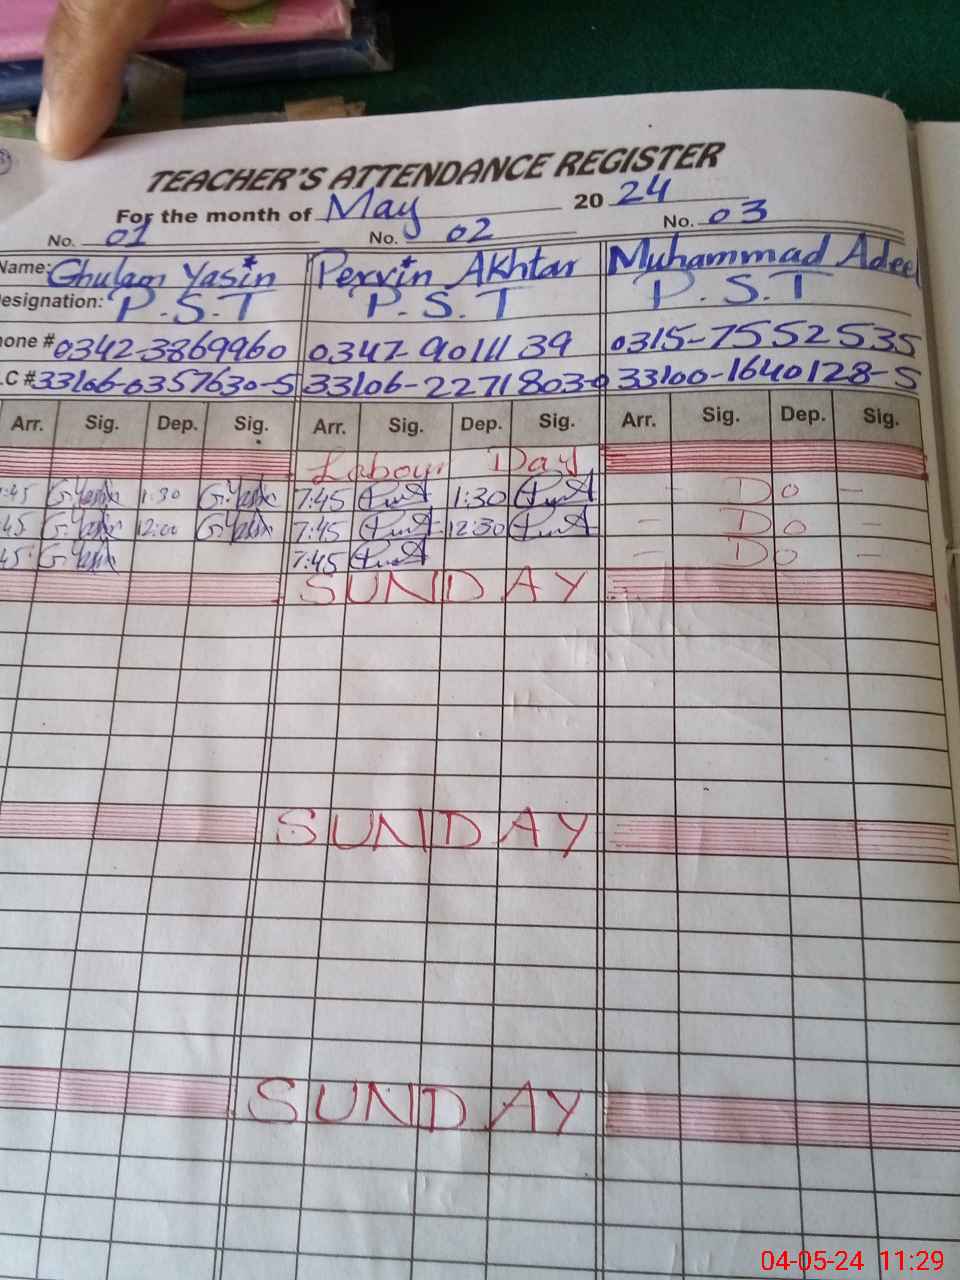 TEACHER'S ATTENDANCE REGISTER
For the month of May 2024
No. 01 No. 02 No. 03
Name: Ghulam Yasin Pervin Akhtar Muhammad Adeel
esignation: P.S.T P.S.T P.S.T
one # 0342-3869960 0347-9011139 0315-7552535
.C # 33106-0357630-5 33106-2271803-0 33100-1640128-5
Arr. Sig. Dep. Sig. Arr. Sig. Dep. Sig. Arr. Sig. Dep. Sig.
Labour Day
:45 G.Yasin 1:30 G.Yasin 7:45 1:30 - Do -
:45 G.Yasin 12:00 G.Yasin 7:45 12:30 - Do -
:45 G.Yasin 7:45 - Do -
SUNDAY
SUNDAY
SUNDAY
04-05-24 11:29